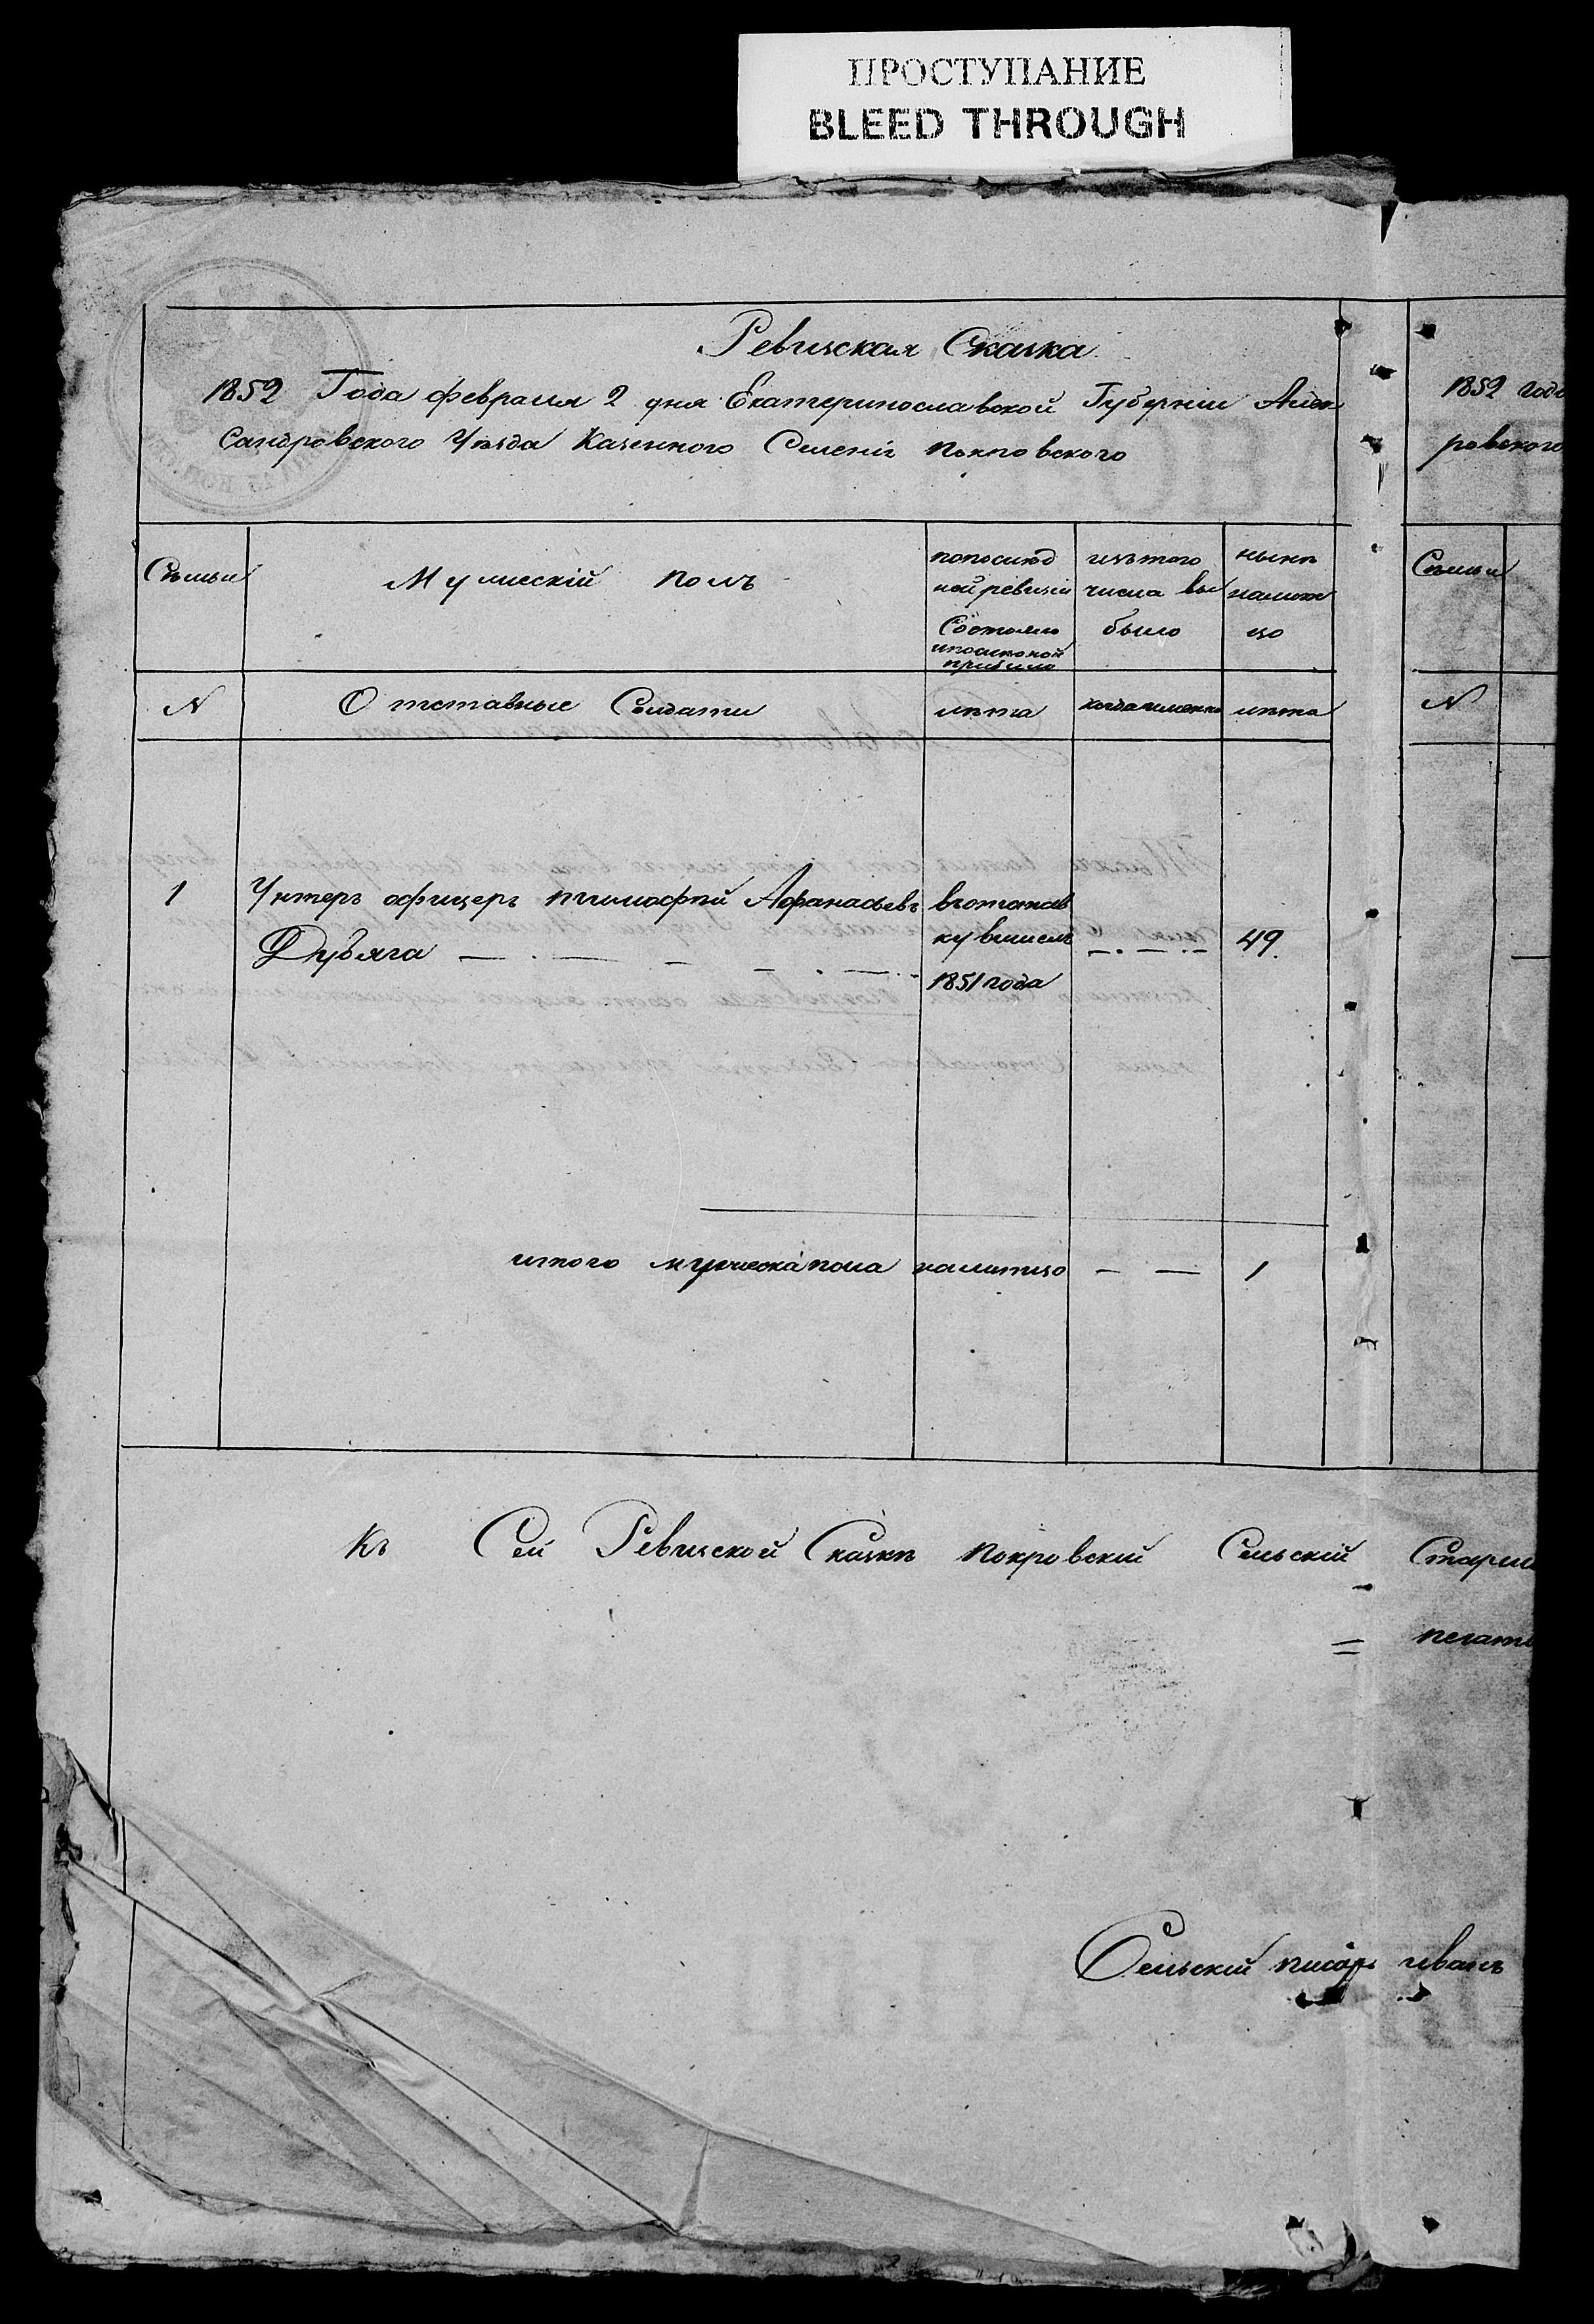 ПРОСТУПАНИЕ
BLEED THROUGH
Ревизская Сказка
1852 Года февраля 2 дня Екатеринославской Губерніи Алек
сандровского Уѣзда Казенного Селенія Покровского
1852 года
ровского
Сѣмьи
Мужескій полъ
попослѣд
ней ревизіи
Состояло
ипослѣоной
прибыло
изътого
числа вы
было
нынѣ
налич
цо
Сѣмьи
N
Отставные Солдаты
лѣта
когдаименно
лѣта
N
1
Унтеръ офицеръ тимофѣй Афанасьевъ
Дубяга
вготстав
ку вышелъ
1851 года
49.
итого мужескапола налицо — — 1
Къ Сей Ревизской Сказкѣ покровскій Сельскій Старши
= печать
Сельскій писарь иванъ